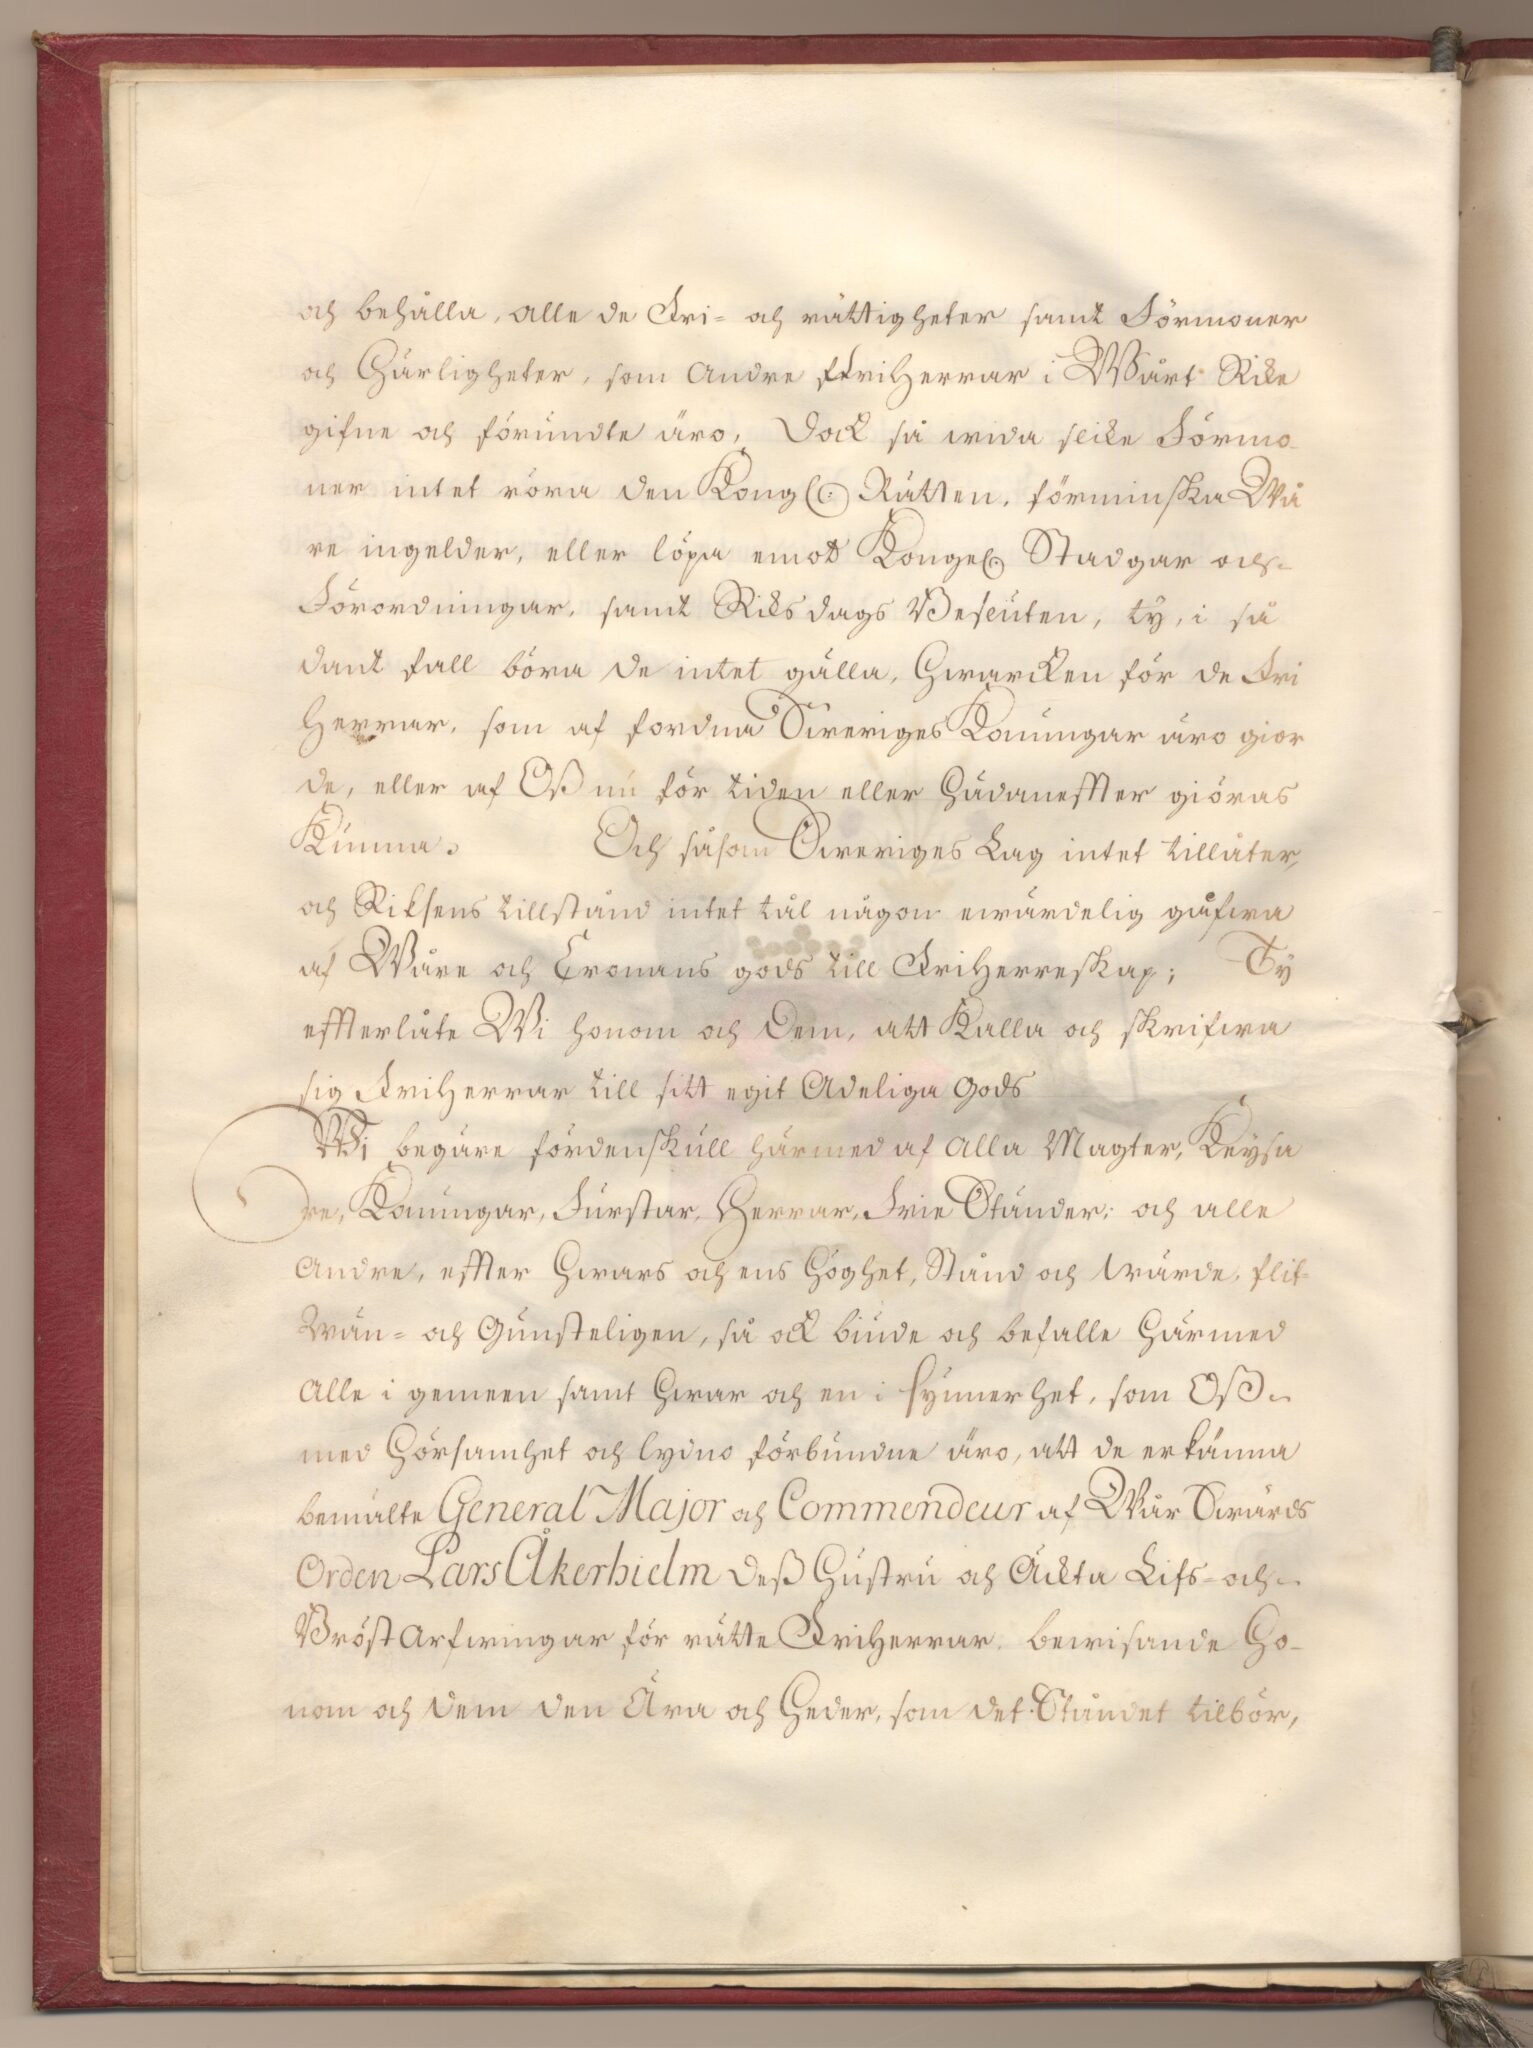 och behålla, alle de Fri- och rättigheter samt Förmoner
och Härligheter, som Andre FriHerrar i Wårt Rike
gifne och förundte äro, Dock så wida slike Förmo-
ner intet röra den Kongl: Rätten, förminska Wå
re ingelder, eller löpa emot Kongel: Stadgar och
Förordningar, samt Riksdags Besluten, ty, i så
dant fall böra de intet gälla, Hwarcken för de Fri
Herrar, som af fordna Sweriges Konungar äro gior
de, eller af Oß nu för tiden eller Hädaneffter giöras
Kunna. Och såsom Sweriges Lag intet tillåter,
och Riksens tillstånd intet tål någon ewärdelig gåfwa
af Wåre och Cronans gods till FriHerreskap; Ty
effterlåte Wi honom och Dem, att Kalla och skrifwa
sig FriHerrar till sitt egit Adeliga Gods
Wi begäre fördenskull härmed af Alla Magter, Keysa
re, Konungar, Furstar, Herrar, Frie Ständer, och alle
Andre, effter Hwars och ens Höghet, Stånd och Wärde, flit-
Wän- och Gunsteligen, så ock biude och befalle Härmed
Alle i gemeen samt Hwar och en i synnerhet, som Oß
med Hörsamhet och lydno förbundne äro, att de erkänna
bemälte General Major och Commendeur af Wår Swärds
Orden Lars Åkerhielm Deß Hustru och Äckta Lifs- och
Bröst Arfwingar för rätte FriHerrar, bewisande Ho-
nom och Dem den Ära och Heder, som det Ståndet tilbör,